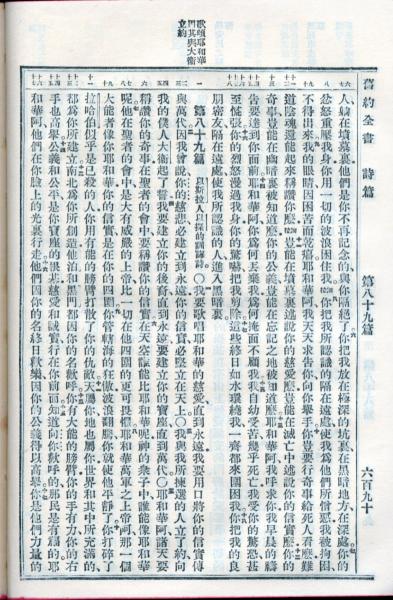 舊約全書 詩篇 第八十九篇 六百九十
人躺在墳墓裏他們是你不再記念的與你隔絕了你把我放在極深的坑裏在黑暗地方在深處你的
忿怒重壓我身你用一切的波浪困住我你把我所認識的隔在遠處使我為他們所憎惡我被拘困
不得出來我的眼睛因困苦而乾癟耶和華阿我天天求告你向你舉手你豈要行奇事給死人看麼難
道陰魂還能起來稱讚你麼豈能在墳墓裏述說你的慈愛麼豈能在滅亡中述說你的信實麼你的
奇事豈能在幽暗裏被知道麼你的公義豈能在忘記之地被知道麼耶和華阿我呼求你我早晨的禱
告要達到你面前耶和華阿你為何丟棄我為何掩面不顧我我自幼受苦幾乎死亡我受你的驚恐甚
至慌張你的烈怒漫過我身你的驚嚇把我剪除這些終日如水環繞我一齊都來圍困我你把我的良
朋密友隔在遠處使我所認識的人進入黑暗裏
第八十九篇 以斯拉人以探的訓誨詩 ○我要歌唱耶和華的慈愛直到永遠我要用口將你的信實傳
與萬代因我曾說你的慈悲必建立到永遠你的信實必堅立在天上○我與我所揀選的人立了約向
我的僕人大衛起了誓我要建立你的後裔直到永遠要建立你的寶座直到萬代耶和華阿諸天要
稱讚你的奇事在聖者的會中要稱讚你的信實在天空誰能比耶和華呢神的衆子中誰能像耶和華
呢他在聖者的會中是大有威嚴的上帝比一切在他四圍的更可畏懼耶和華萬軍之上帝阿那一個
大能者像你耶和華你的信實是在你的四圍你管轄海的狂傲波浪翻騰你就使他平靜了你打碎了
拉哈伯似乎是已殺的人你用有能的膀臂打散了你的仇敵天屬你地也屬你世界和其中所充滿的
都為你所建立南北為你所創造他泊和黑門都因你的名歡呼你有大能的膀臂你的手有力你的右
手也高舉公義和公平是你寶座的根基慈愛和誠實行在你前面知道向你歡呼的那民是有福的耶
和華阿他們在你臉上的光裏行走他們因你的名終日歡樂因你的公義得以高舉你是他們力量的
歌頌耶和華
與大衛
立約